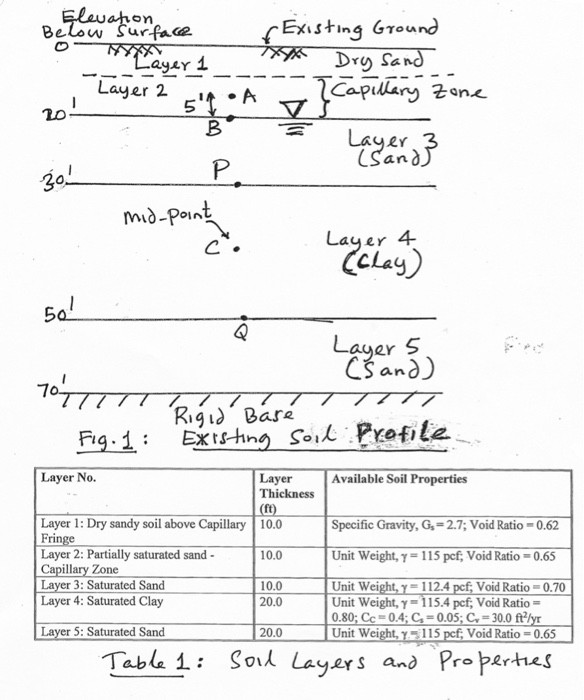 Elevation
Below Surface
Existing Ground
0
Layer 1
Dry Sand
Layer 2
Capillary Zone
5'
A
20'
B
Layer 3
(Sand)
30'
P
mid-point
C
Layer 4
(Clay)
50'
Q
Layer 5
(Sand)
70'
Rigid Base
Fig. 1: Existing Soil Profile
Layer No. Layer Thickness (ft) Available Soil Properties
Layer 1: Dry sandy soil above Capillary Fringe 10.0 Specific Gravity, Gs = 2.7; Void Ratio = 0.62
Layer 2: Partially saturated sand - Capillary Zone 10.0 Unit Weight, γ = 115 pcf; Void Ratio = 0.65
Layer 3: Saturated Sand 10.0 Unit Weight, γ = 112.4 pcf; Void Ratio = 0.70
Layer 4: Saturated Clay 20.0 Unit Weight, γ = 115.4 pcf; Void Ratio = 0.80; Cc = 0.4; Cs = 0.05; Cv = 30.0 ft²/yr
Layer 5: Saturated Sand 20.0 Unit Weight, γ = 115 pcf; Void Ratio = 0.65
Table 1: Soil Layers and Properties